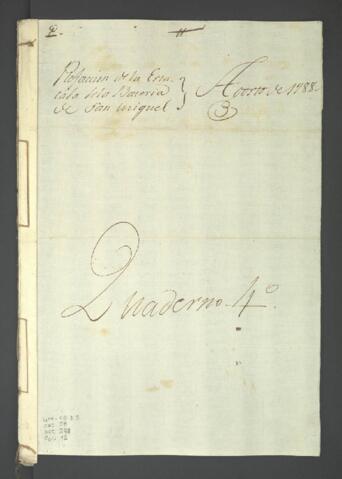 2.
Relacion de la Esta-
cada de la Bateria
de San Miguel
Agosto de 1788.
3
Quaderno 4º.